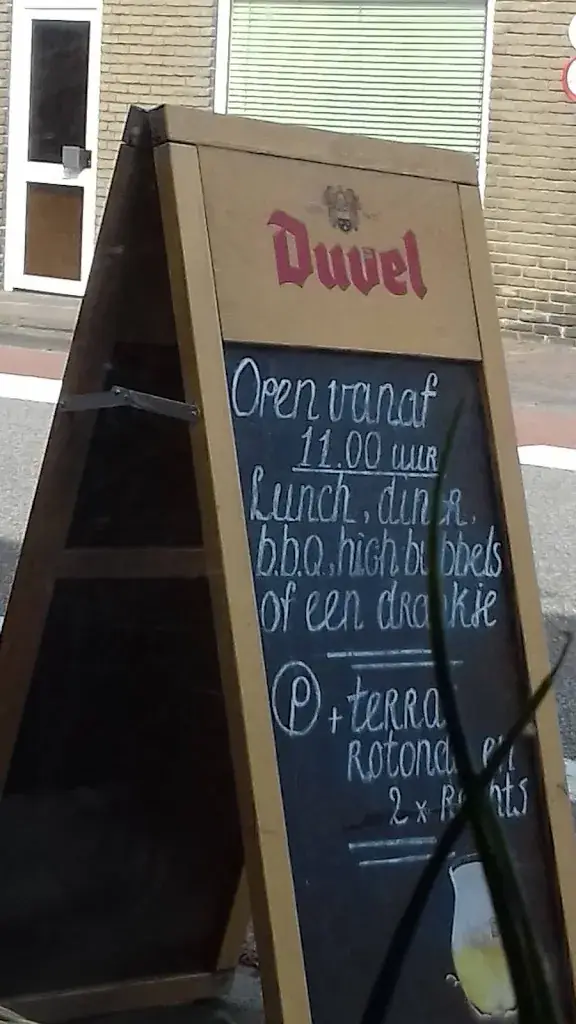 Duvel
Open vanaf
11.00 uur
Lunch, diner,
b.b.q., high bubbels
of een drankje
P + terras
Rotonde en
2 x Rechts